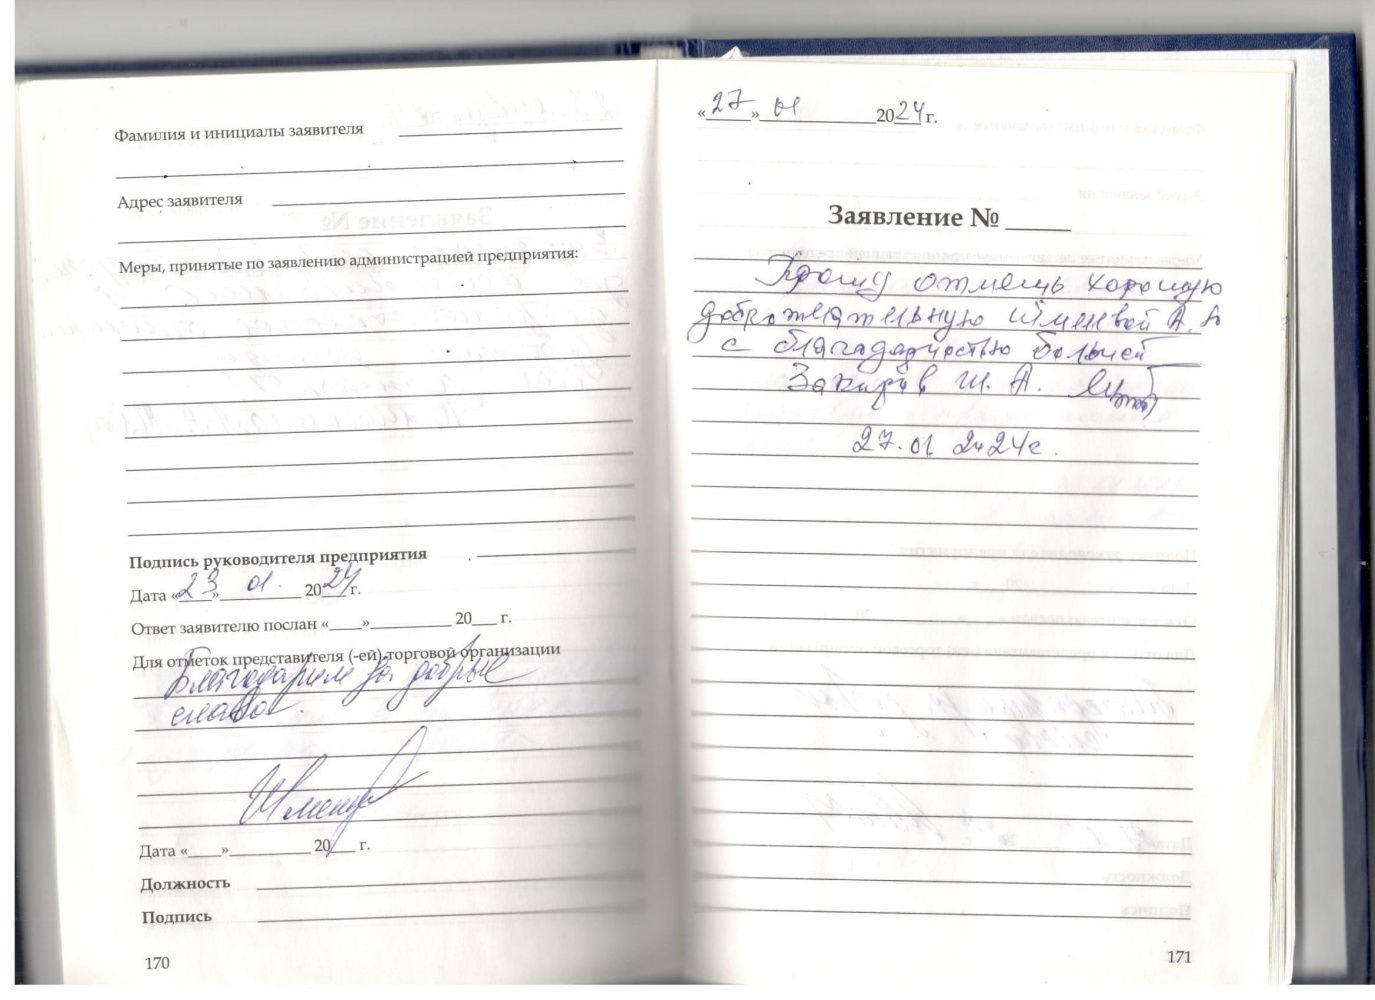 Фамилия и инициалы заявителя
Адрес заявителя
Меры, принятые по заявлению администрацией предприятия:
Подпись руководителя предприятия
Дата «23» 01. 2024 г.
Ответ заявителю послан «____»__________ 20___ г.
Для отметок представителя (-ей) торговой организации
Благодарим за добрые
слова.
Дата «____»__________ 20___ г.
Должность
Подпись
170
«27» 01 2024 г.
Заявление № _____
Прошу отметь хорошую
доброжелательную А. А
с благодарностью большей
Закиров Ш. А.
27.01 2024г.
171